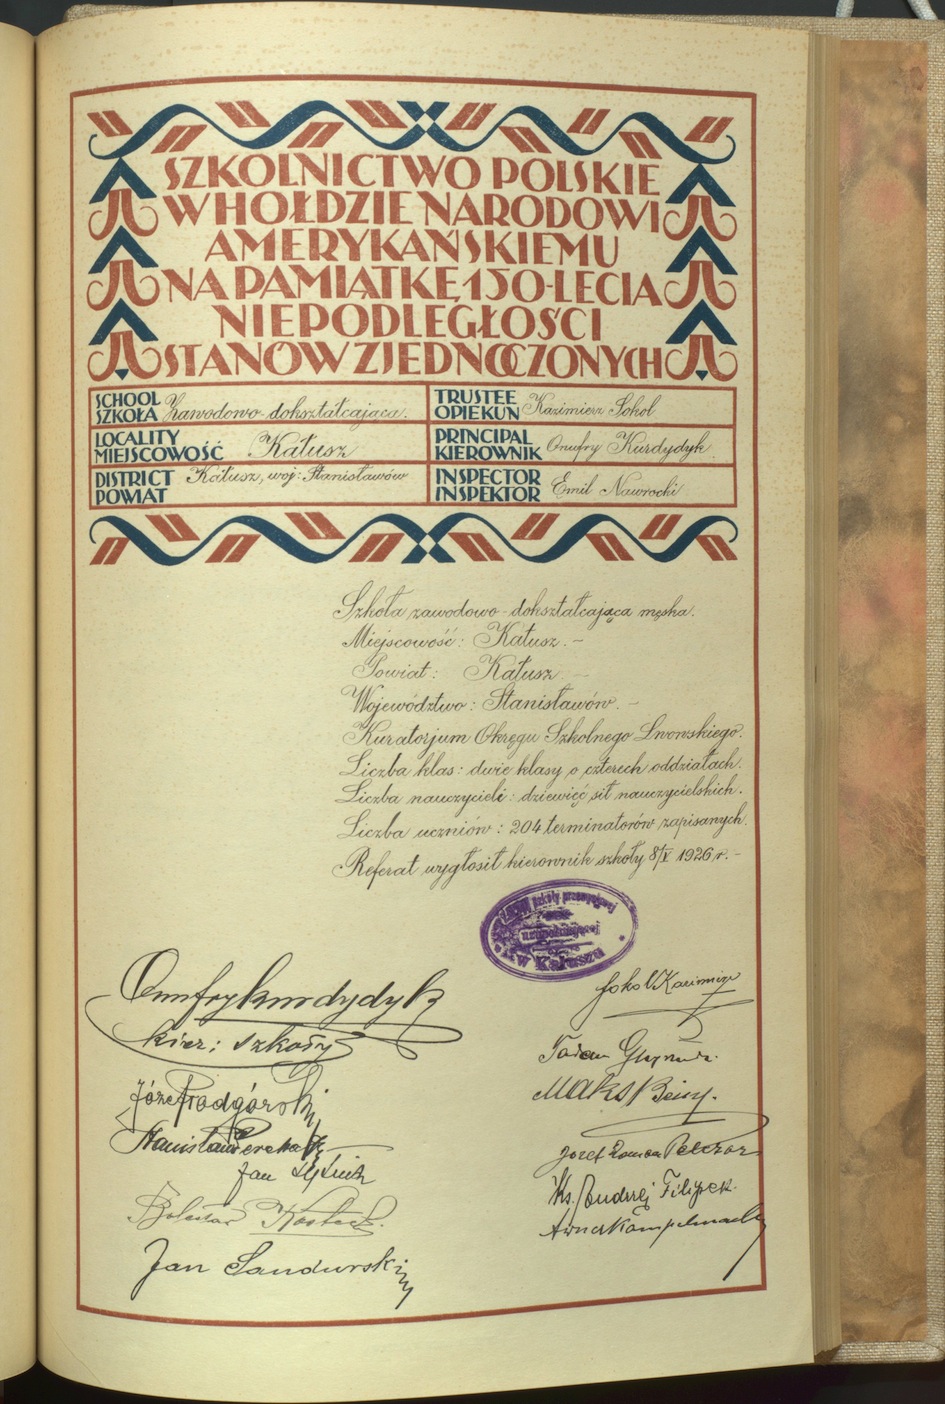 SZKOLNICTWO POLSKIE
W HOŁDZIE NARODOWI
AMERYKAŃSKIEMU
NA PAMIĄTKĘ 150-LECIA
NIEPODLEGŁOŚCI
STANÓW ZJEDNOCZONYCH
SCHOOL
SZKOŁA Zawodowo-dokształcająca.
TRUSTEE
OPIEKUN Kazimierz Sokol
LOCALITY
MIEJSCOWOŚĆ Kałusz
PRINCIPAL
KIEROWNIK Onufry Kurdydyk.
DISTRICT
POWIAT Kałusz, woj: Stanisławów
INSPECTOR
INSPEKTOR Emil Nawrocki
Szkoła zawodowo-dokształcająca męska.
Miejscowość: Kałusz. -
Powiat: Kałusz. -
Województwo: Stanisławów. -
Kuratorjum Okręgu Szkolnego Lwowskiego.
Liczba klas: dwie klasy o czterech oddziałach.
Liczba nauczycieli: dziewięć sił nauczycielskich.
Liczba uczniów: 204 terminatorów zapisanych.
Referat wygłosił kierownik szkoły 8/V 1926 r. -
szkoły przemysłowej
uzupełniającej
w Kałuszu
Onufry Kurdydyk
kier: szkoły
Józef Podgórski
Stanisław
Jan
Bolesław
Jan Sandurski
Sokol Kazimierz
Maks
Józef Pelczar
Ks. Andrzej Filipek.